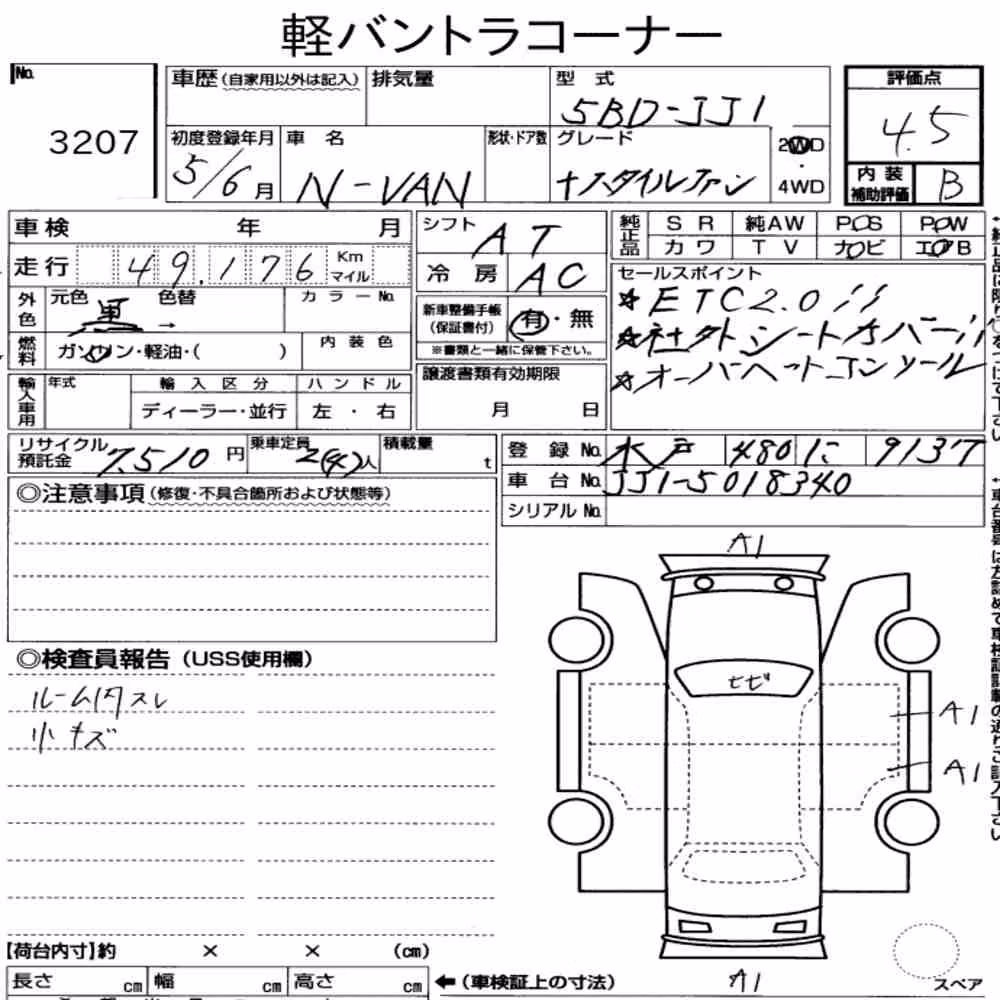 軽バントラコーナー
No. 3207
車歴(自家用以外は記入) 排気量 型式 5BD-JJ1
評価点 4.5
内装補助評価 B
初度登録年月 5/6月 車名 N-VAN 形状・ドア数 グレード +スタイルファン 2WD・4WD
車検 年 月
走行 49.176 Km マイル
シフト AT
冷房 AC
純正品 SR 純AW POS POW
カワ TV カロビ エアB
外色 元色 黒 色替 → カラーNo.
燃料 ガソリン・軽油・( ) 内装色
新車整備手帳(保証書付) 有・無
※書類と一緒に保管下さい。
セールスポイント
☆ETC2.0!!
☆社外シートカバー!!
☆オーバーヘットコンソール
輸入車用 年式 輸入区分 ハンドル
ディーラー・並行 左・右
譲渡書類有効期限
月 日
リサイクル預託金 7,510円 乗車定員 2(4)人 積載量 t
登録No. 水戸 480 に 9137
車台No. JJ1-5018340
シリアルNo.
◎注意事項(修復・不具合箇所および状態等)
◎検査員報告(USS使用欄)
ルーム内スレ
小キズ
A1
トビ
A1
A1
A1
【荷台内寸】約 × × (cm)
長さ cm 幅 cm 高さ cm ←(車検証上の寸法)
スペア